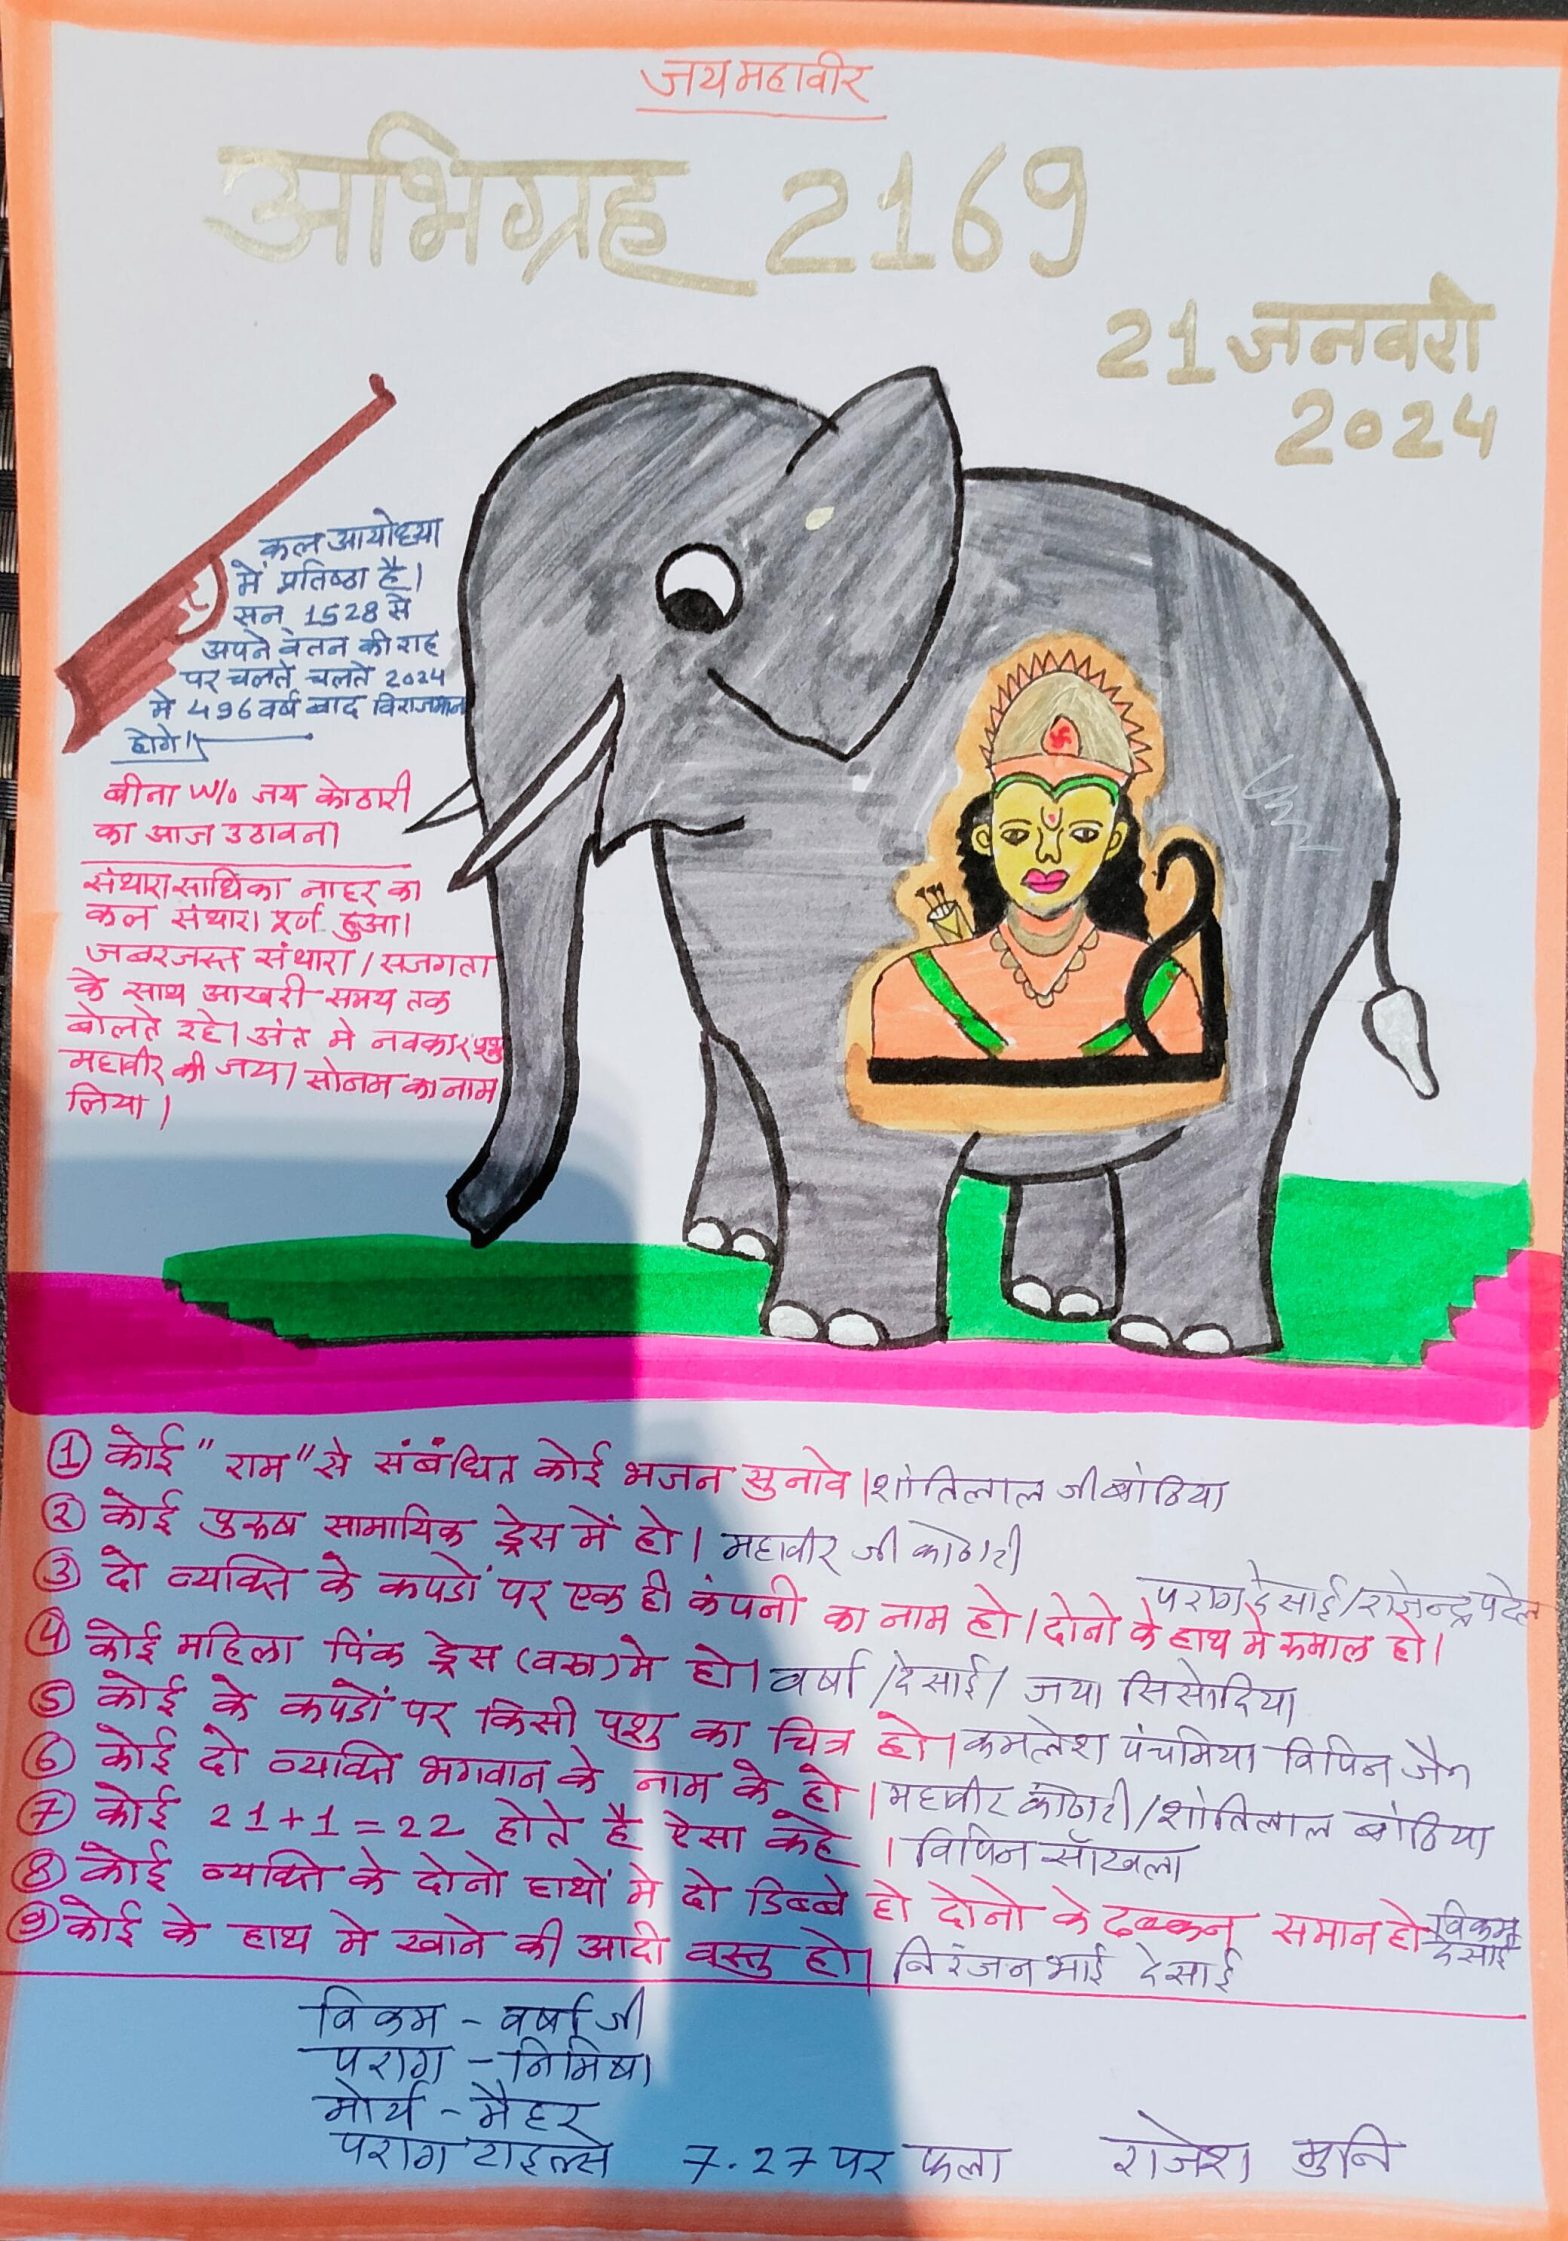 जय महावीर
अभिग्रह 2169
21 जनवरी
2024
कल आयोध्या
में प्रतिष्ठा है।
सन् 1528 से
अपने वतन की राह
पर चलते चलते 2024
मे 496 वर्ष बाद विराजमान
होगे।
बीना W/o जय कोठारी
का आज उठावना
संथारा साधिका नाहर का
कल संथारा पूर्ण हुआ।
जबरजस्त संथारा / सजगता
के साथ आखरी समय तक
बोलते रहे। अंत मे नवकार प्रभु
महावीर की जय। सोनम का नाम
लिया।
① कोई "राम" से संबंधित कोई भजन सुनावे। शांतिलाल जी बांठिया
② कोई पुरुष सामायिक ड्रेस में हो। महावीर जी कोठारी
③ दो व्यक्ति के कपडों पर एक ही कंपनी का नाम हो। दोनो के हाथ मे रुमाल हो। पराग देसाई/राजेन्द्र पटेल
④ कोई महिला पिंक ड्रेस (वस्त्र) मे हो। वर्षा /देसाई/ जया सिसोदिया
⑤ कोई के कपडों पर किसी पशु का चित्र हो। कमलेश पंचमिया विपिन जैन
⑥ कोई दो व्यक्ति भगवान के नाम के हो। महावीर कोठारी/शांतिलाल बांठिया
⑦ कोई 21+1=22 होते है ऐसा कहे। विपिन साँखला
⑧ कोई व्यक्ति के दोनो हाथों मे दो डिब्बे हो दोनो के ढक्कन समान हो विक्रम देसाई
⑨ कोई के हाथ मे खाने की आदी वस्तु हो। निरंजन भाई देसाई
विक्रम - वर्षा जी
पराग - निमिषा
मोर्य - मैहर
पराग टाइल्स 7.27 पर फला राजेश मुनि